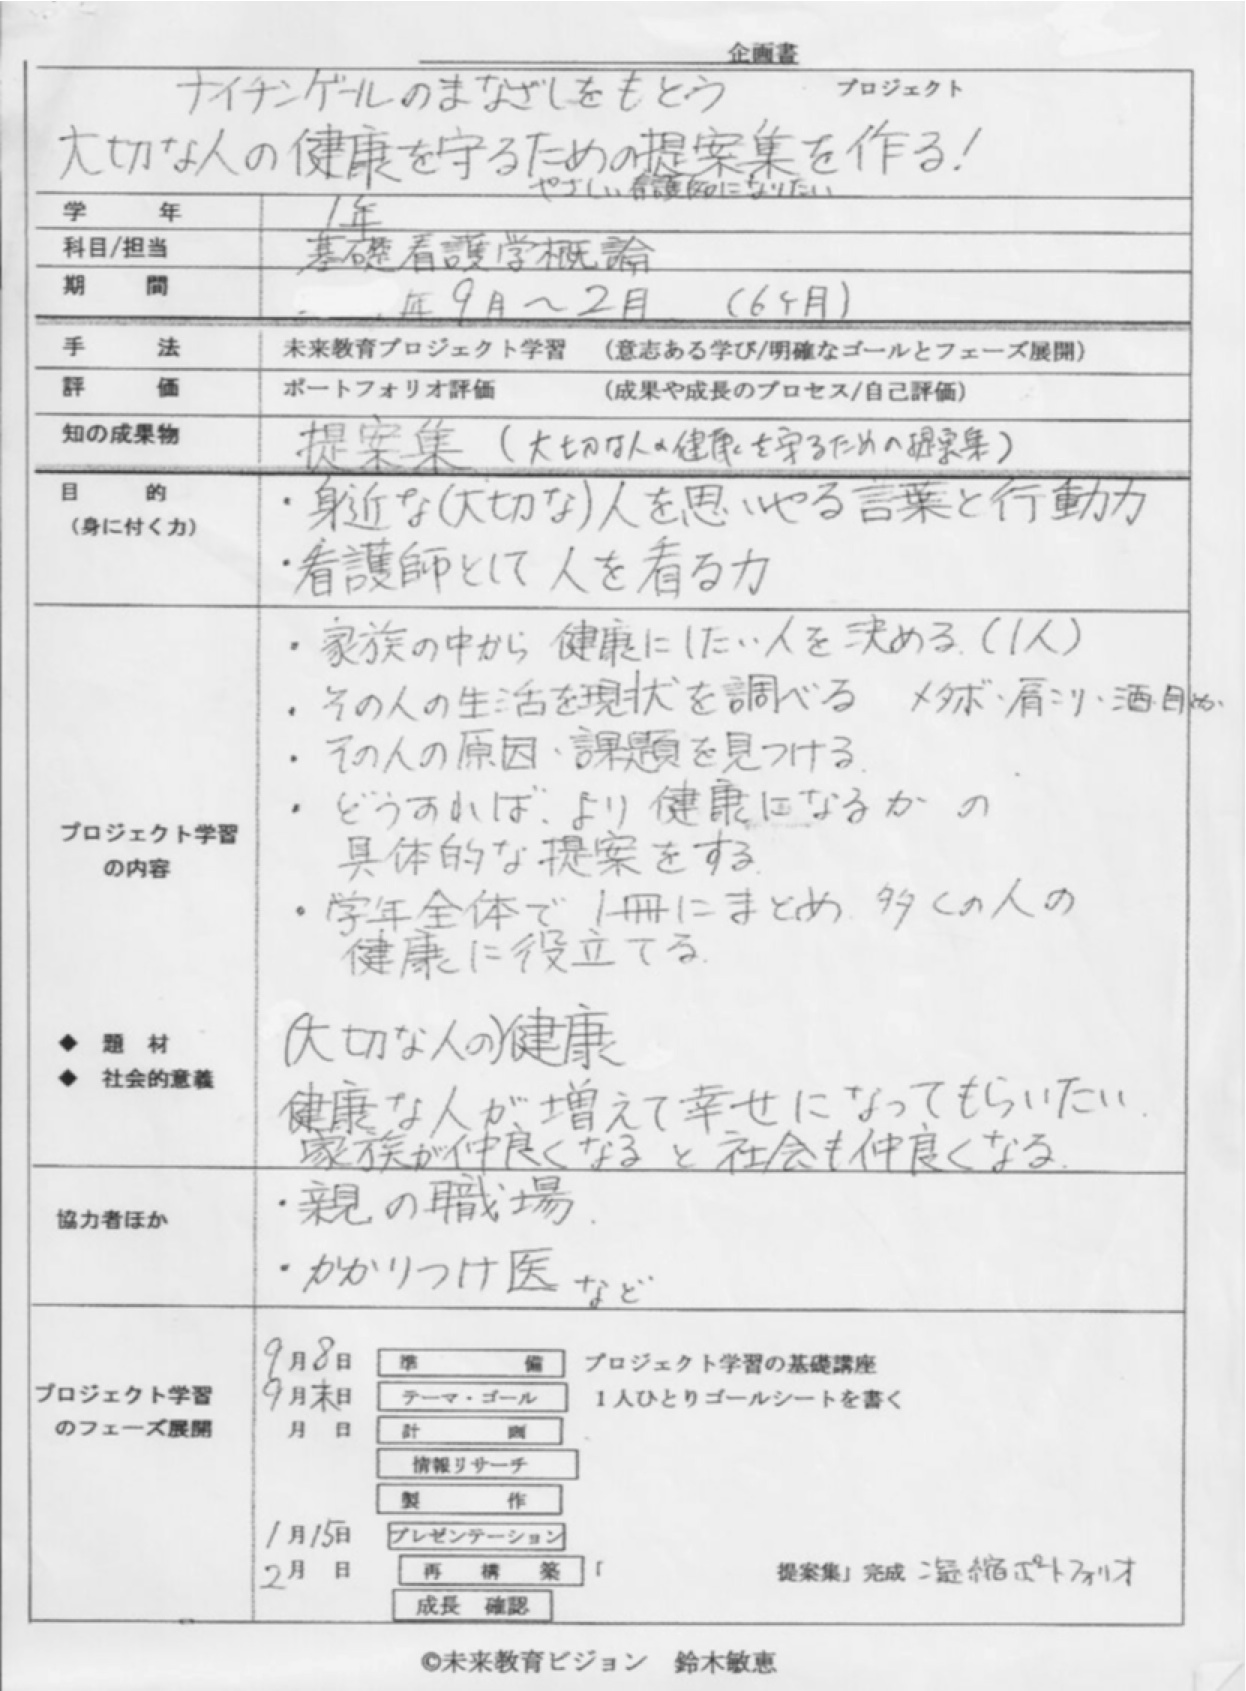 企画書
ナイチンゲールのまなざしをもとう プロジェクト
大切な人の健康を守るための提案集を作る!
やさしい看護師になりたい
学年 1年
科目/担当 基礎看護学概論
期間 年 9月~2月 (6ヶ月)
手法 未来教育プロジェクト学習 (意志ある学び/明確なゴールとフェーズ展開)
評価 ポートフォリオ評価 (成果や成長のプロセス/自己評価)
知の成果物 提案集 (大切な人の健康を守るための提案集)
目的 ・身近な(大切な)人を思いやる言葉と行動力
(身に付く力)
・看護師として人を看る力
・家族の中から 健康にしたい人を決める.(1人)
・その人の生活を現状を調べる メタボ・肩こり・酒
・その人の原因・課題を見つける.
・どうすれば、より健康になるかの
プロジェクト学習
の内容
具体的な提案をする.
・学年全体で1冊にまとめ 多くの人の
健康に役立てる.
◆ 題材 (大切な人の)健康
◆ 社会的意義
健康な人が増えて幸せになってもらいたい.
家族が仲良くなると社会も仲良くなる.
協力者ほか ・親の職場.
・かかりつけ医 など
プロジェクト学習
のフェーズ展開
9月8日 準備 プロジェクト学習の基礎講座
9月末日 テーマ・ゴール 1人ひとりゴールシートを書く
月 日 計画
情報リサーチ
製作
1月15日 プレゼンテーション
2月 日 再構築 「 提案集」完成 凝縮ポートフォリオ
成長 確認
©未来教育ビジョン 鈴木敏恵